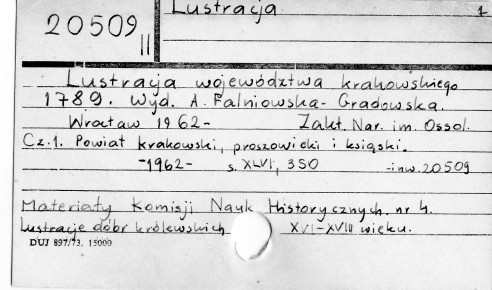 Lustracja 1
20509
II
Lustracja województwa krakowskiego
1789. Wyd. A. Falniowska-Gradowska.
Wrocław 1962- Zakł. Nar. im. Ossol.
Cz.1. Powiat krakowski, proszowicki i książski.
-1962- s. XLVI, 350 -inw. 20509
Materiały Komisji Nauk Historycznych. nr 4.
Lustracje dóbr królewskich XVI-XVIII wieku.
DUJ 897/73. 15000